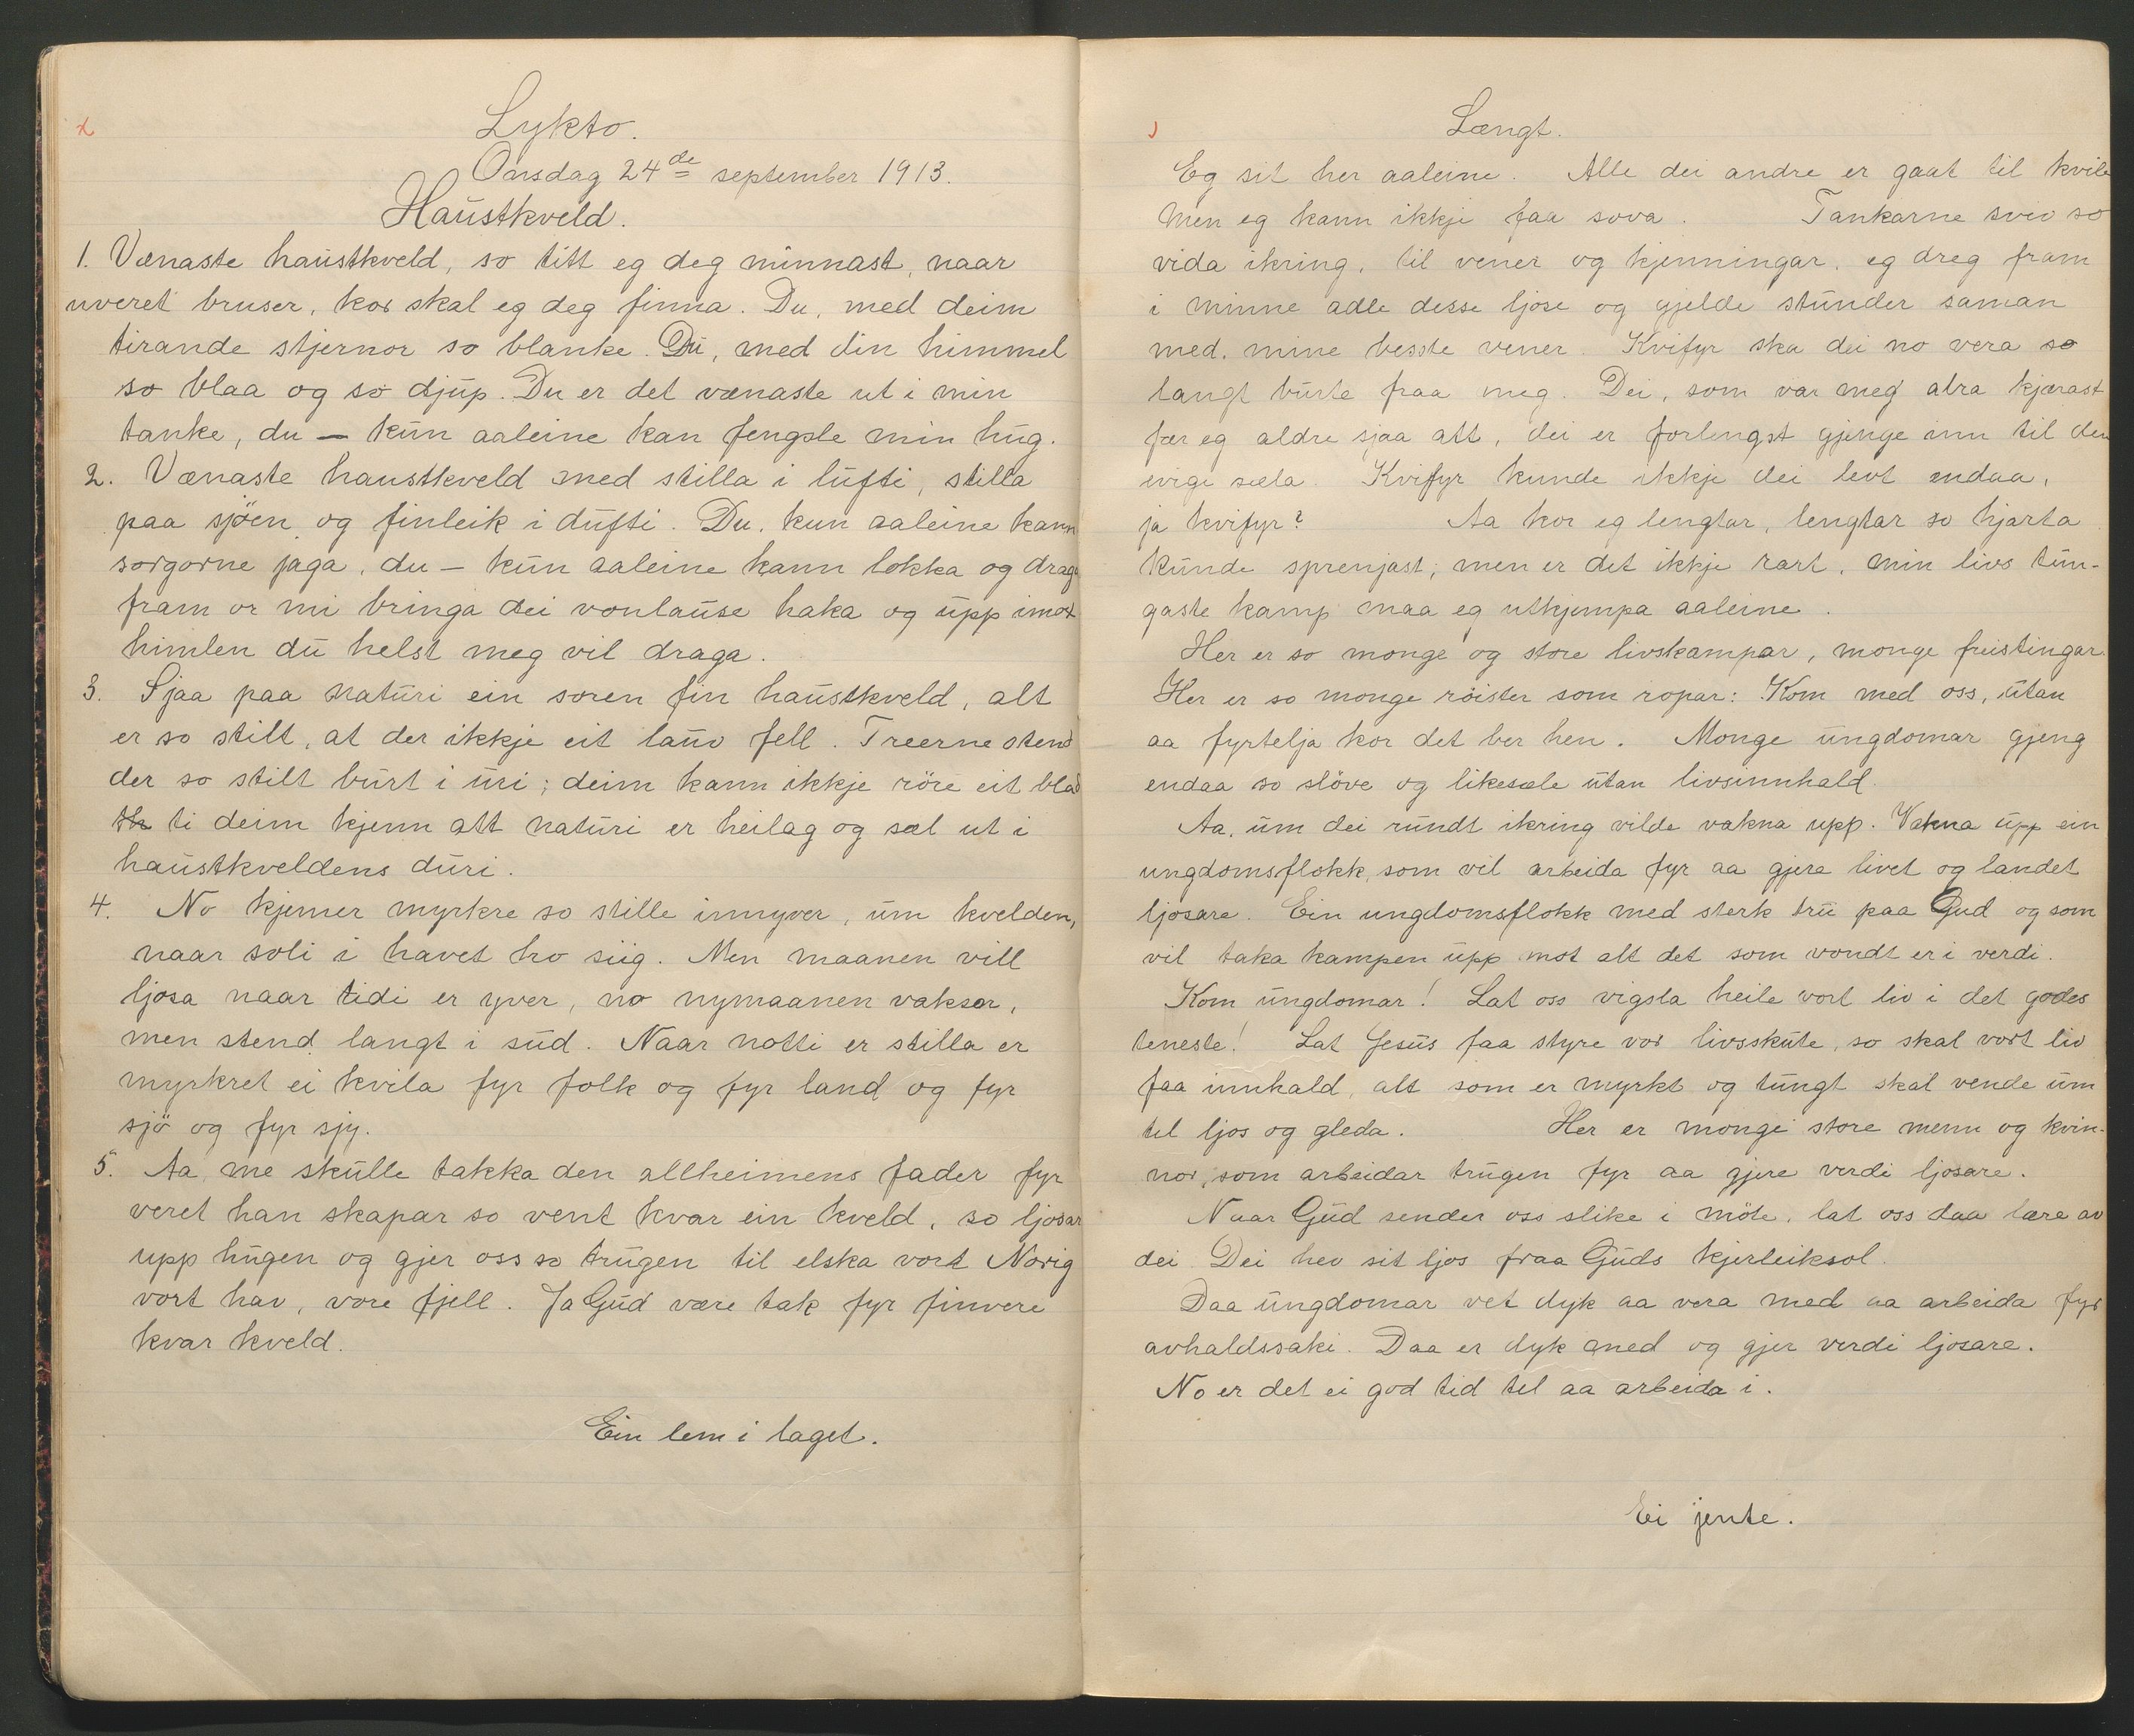 Lykto.
Onsdag 24de september 1913.
Haustkveld.
1. Vænaste haustkveld, so titt eg deg minnast, naar
uveret bruser, kor skal eg deg finna. Du, med deim
tirande stjernor so blanke. Du, med din himmel
so blaa og so djup. Du er det vænaste ut i min
tanke, du — kun aaleine kan fengsle min hug.
2. Vænaste haustkveld med stilla i lufti, stilla
paa sjöen og finleik i dufti. Du, kun aaleine kann
sorgorne jaga, du — kun aaleine kann lokka og draga
fram or mi bringa dei vonlause haka og upp imot
himlen du helst meg vil draga.
3. Sjaa paa naturi ein soren fin haustkveld, alt
er so stilt, at der ikkje eit lauv fell. Treerne stend
der so stilt burt i uri; deim kann ikkje röre eit blad
ti deim kjenn att naturi er heilag og sæl ut i
haustkveldens duri.
4. No kjemer myrkre so stille innyver, um kvelden,
naar soli i havet ho siig. Men maanen vill
ljosa naar tidi er yver, no nymaanen vakser,
men stend langt i sud. Naar notti er stilla er
myrkret ei kvila fyr folk og fyr land og fyr
sjö og fyr sjy.
5. Aa, me skulle takka den allheimens fader fyr
veret han skapar so vent kvar ein kveld, so ljosar
upp hugen og gjer oss so trugen til elska vort Norig
vort hav, vore fjell. Ja Gud være tak fyr finvere
kvar kveld.
Ein lem i laget.
Længt.
Eg sit her aaleine. Alle dei andre er gaat til kvile
men eg kann ikkje faa sova. Tankarne sviv so
vida ikring, til vener og kjenningar, eg dreg fram
i minne adle desse ljose og gjelde stunder saman
med mine besste vener. Kvifyr ska dei no vera so
langt burte fraa meg. Dei, som var meg alra kjærast
fær eg aldre sjaa att, dei er forlengst gjenge inn til den
evige sæla. Kvifyr kunde ikkje dei levt endaa,
ja kvifyr? Aa kor eg lengtar, lengtar so hjarta
kunde sprenjast; men er det ikkje rart, min livs tun-
gaste kamp maa eg utkjempa aaleine.
Her er so monge og store livskampar, monge freistingar.
Her er so monge röister som ropar: Kom med oss, utan
aa fyrtelja kor det ber hen. Monge ungdomar gjeng
endaa so slöve og likesæle utan livsinnhald.
Aa, um dei rundt ikring vilde vakna upp. Vakna upp ein
ungdomsflokk, som vil arbeida fyr aa gjera livet og landet
ljosare. Ein ungdomsflokk med sterk tru paa Gud og som
vil taka kampen upp mot alt det som vondt er i verdi.
Kom ungdomar! Lat oss vigsla heile vort liv i det godes
teneste! Lat Jesus faa styre vor livsskute, so skal vort liv
faa innhald, alt som er myrkt og tungt skal vende um
til ljos og gleda. Her er monge store menn og kvin-
nor, som arbeidar trugen fyr aa gjere verdi ljosare.
Naar Gud sender oss slike i möte, lat oss daa lære av
dei. Dei hev sit ljos fraa Guds kjerleiksol.
Daa ungdomar vet dyk aa vera med aa arbeida fyr
avhaldssaki. Daa er dyk med og gjer verdi ljosare.
No er det ei god tid til aa arbeida i.
Ei jente.